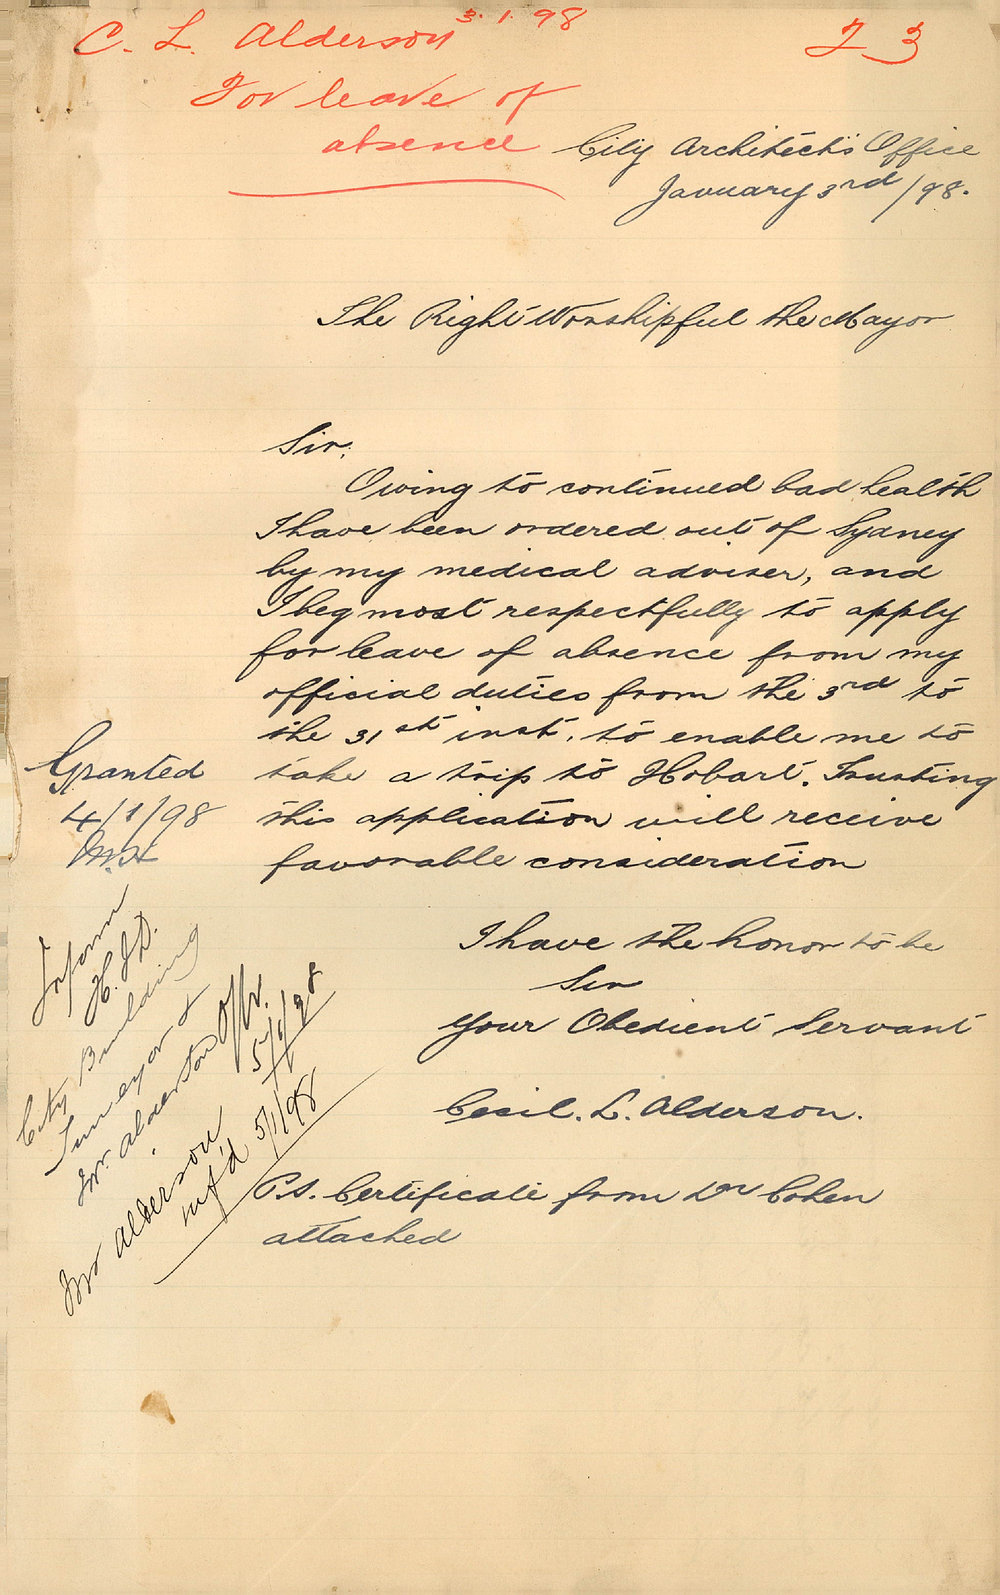 C. L. Alderson 3.1.98
For leave of
absence
City Architect's Office
January 3rd/98.
The Right Worshipful the Mayor
Sir,
Owing to continued bad health
I have been ordered out of Sydney
by my medical adviser, and
I beg most respectfully to apply
for leave of absence from my
official duties from the 3rd to
the 31st inst. to enable me to
take a trip to Hobart. Trusting
this application will receive
favorable consideration
I have the honor to be
Sir
Your Obedient Servant
Cecil. L. Alderson.
P.S. Certificate from Dr Cohen
attached
Granted
4/1/98
Inform
H.J.D.
City Building
Surveyor &
Mr. Alderson
5/1/98
Mr Alderson
inf'd 5/1/98